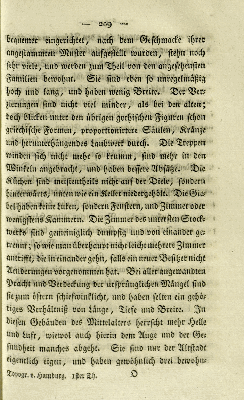 — 209 —
bequemer eingerichtet, nach dem Geschmacke ihrer
angestammten Muster aufgestellt wurden, stehn noch
sehr viele, und werden zum Theil von den angesehensten
Familien bewohnt. Sie sind eben so unregelmäßig
hoch und lang, und haben wenig Breite. Der Ver-
zierungen sind nicht viel minder, als bei den alten;
doch blicken unter den übrigen gothischen Figuren schon
griechische Formen, proportionirte Säulen, Kränze
und herunterhängendes Laubwerk durch. Die Treppen
winden sich nicht mehr so krumm, sind mehr in den
Winkeln angebracht, und haben bessere Absätze. Die
Küchen sind meistentheils nicht auf der Diele, sondern
hinderwärts, unten wie ein Keller niedergehölt. Die Gie-
bel haben keine Luken, sondern Fenstern, und Zimmer oder
wenigstens Kammern. Die Zimmer des untersten Stock-
werks sind gemeiniglich dumpfig und von einander ge-
trennt; so wie man überhaupt nicht leicht mehrere Zimmer
antrifft, die in einander gehn, falls ein neuer Besitzer nicht
Aenderungen vorgenommen hat. Bei aller angewandten
Pracht und Verdeckung der ursprünglichen Mängel sind
sie zum öftern schiefwinklicht, und haben selten ein gehö-
riges Verhältniß von Länge, Tiefe und Breite. In
diesen Gebäuden des Mittelalters herrscht mehr Helle
und Luft, wiewol auch hierin dem Auge und der Ge-
sundheit manches abgeht. Sie sind nur der Altstadt
eigentlich eigen, und haben gewöhnlich drei bewohn-
Topogr. v. Hamburg. 1ster Th. O